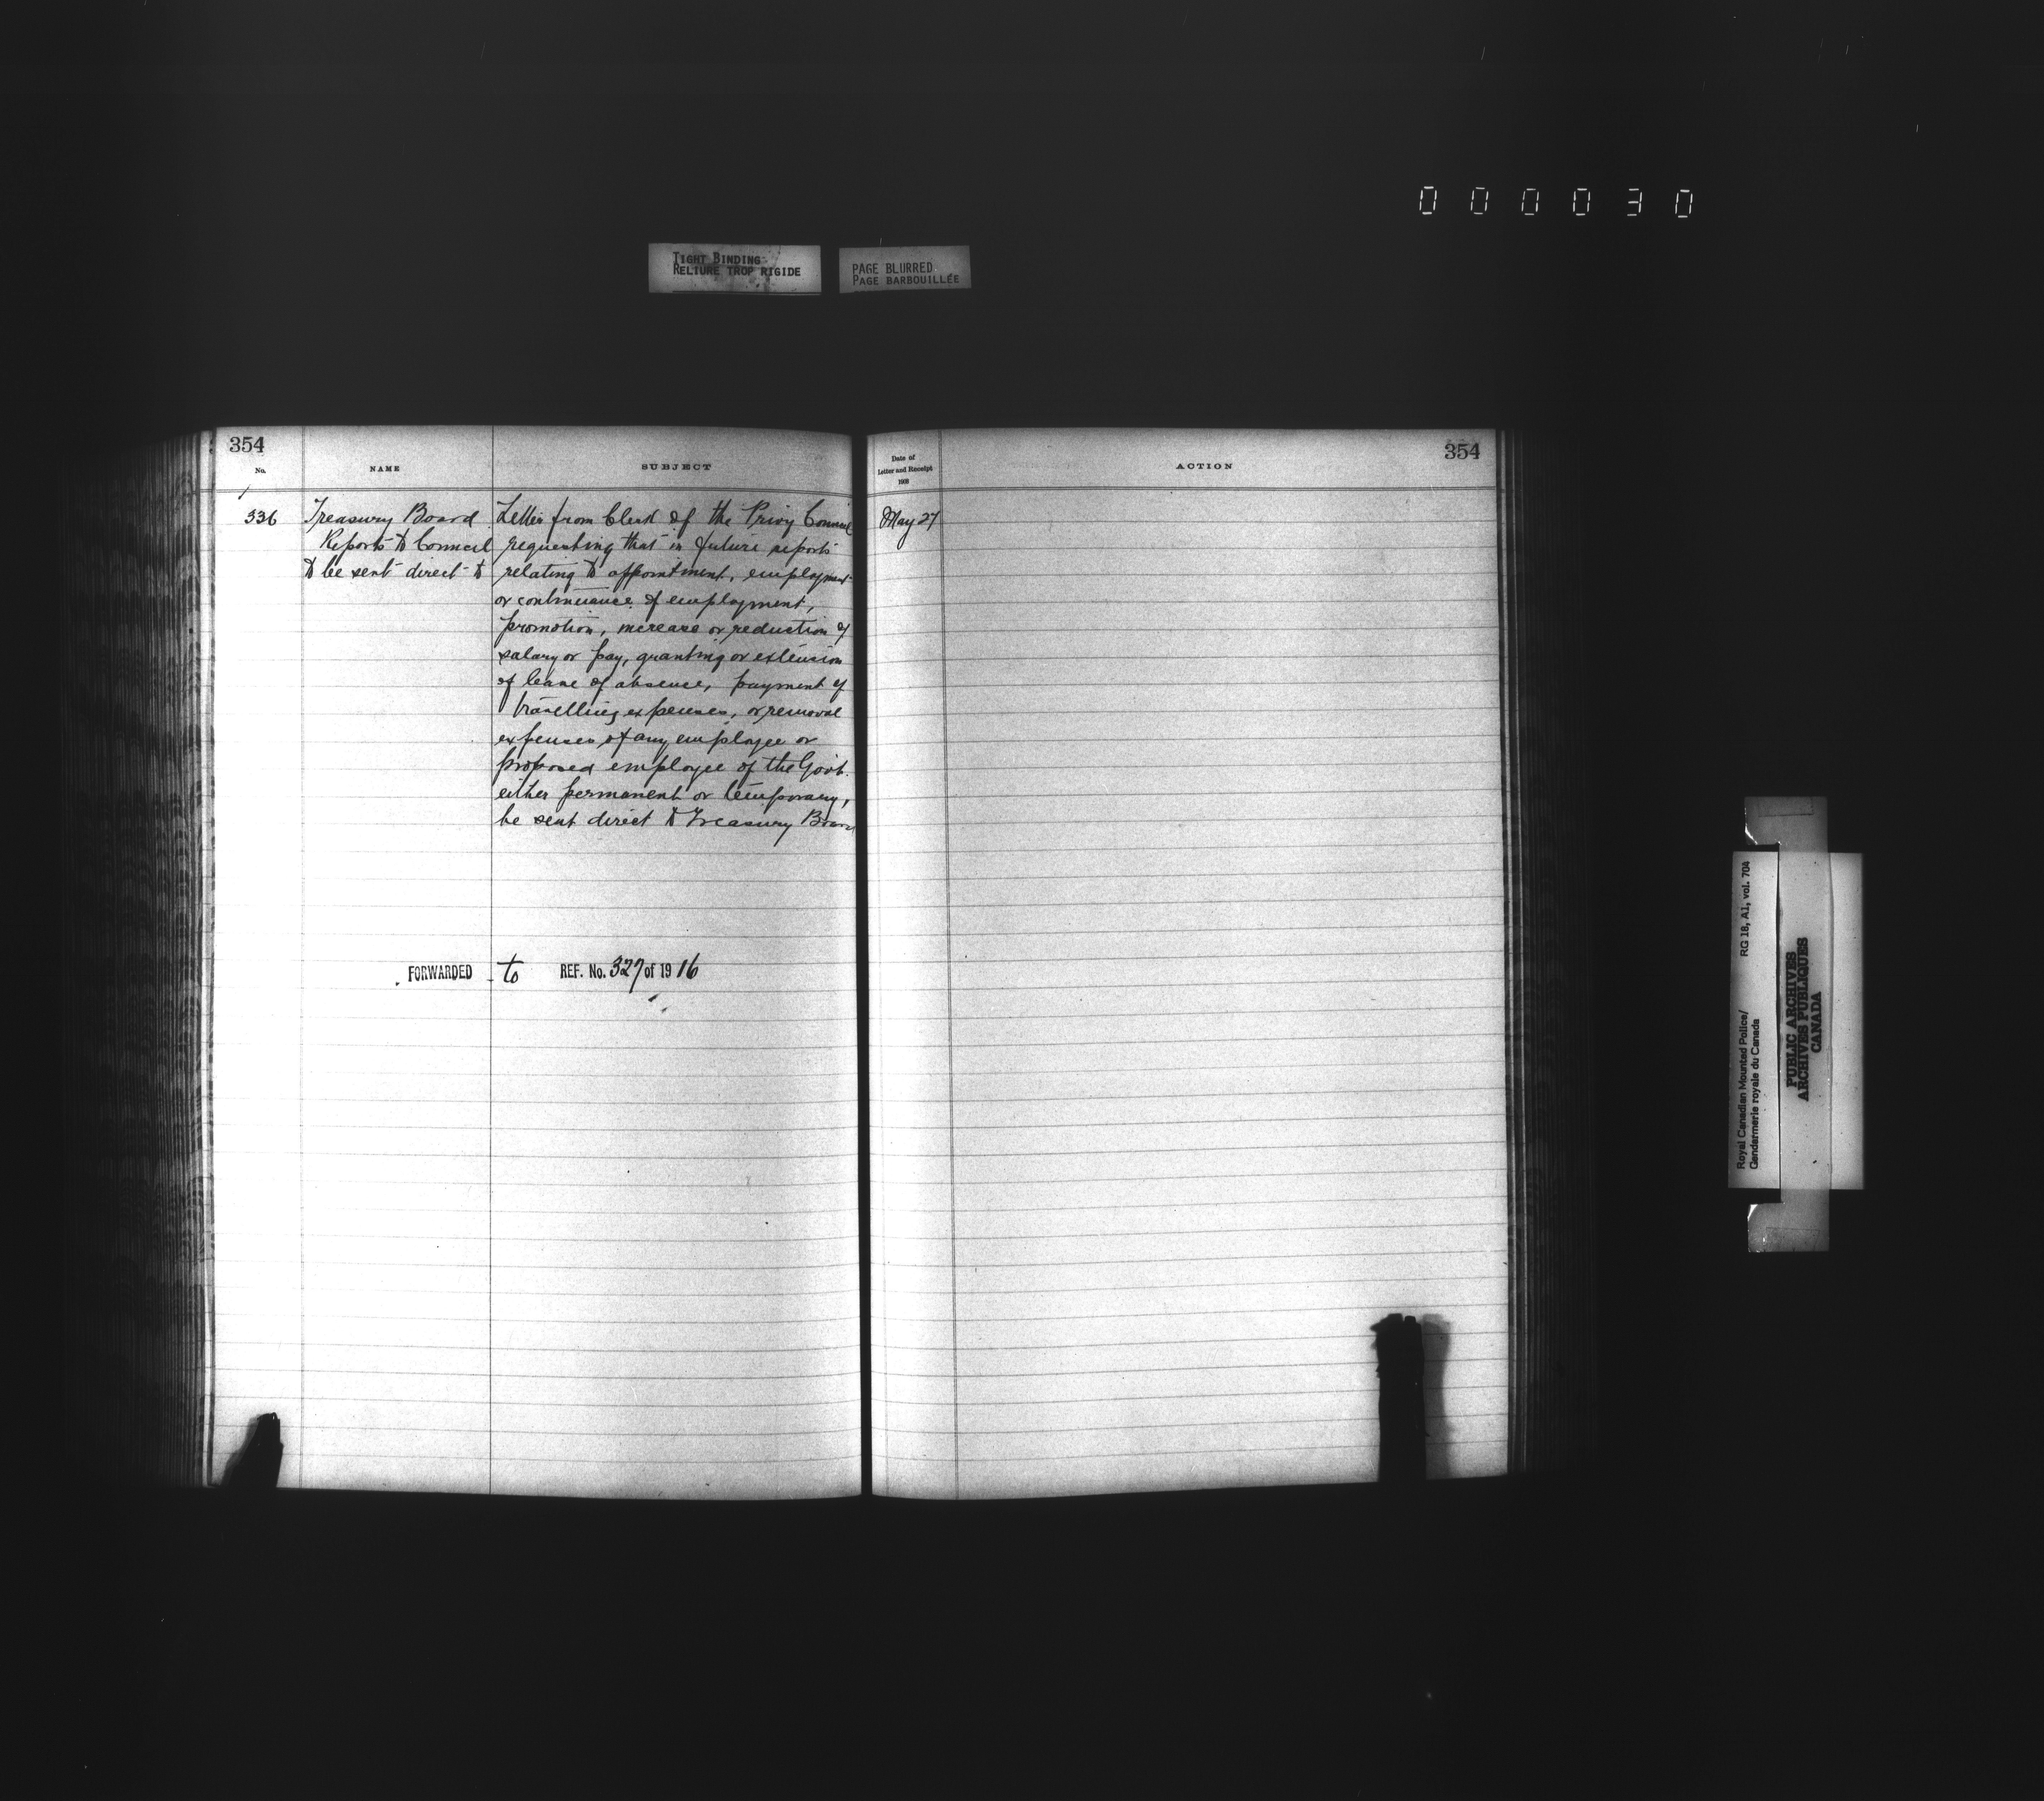 000030
TIGHT BINDING
RELIURE TROP RIGIDE
PAGE BLURRED
PAGE BARBOUILLÉE
354
No.
NAME
SUBJECT
336
Treasury Board
Reports to Council
to be sent direct to
Letter from Clerk of the Privy Council
requesting that in future reports
relating to appointment, employment
or continuance of employment,
promotion, increase or reduction of
salary or pay, granting or extension
of leave of absence, payment of
travelling expenses, or removal
expenses of any employee or
proposed employee of the Govt.
either permanent or temporary,
be sent direct to Treasury Board
FORWARDED to REF. No. 327 of 1916
Date of
Letter and Receipt
1908
ACTION
354
May 27
Royal Canadian Mounted Police/
Gendarmerie royale du Canada
RG 18, A1, vol. 704
PUBLIC ARCHIVES
ARCHIVES PUBLIQUES
CANADA